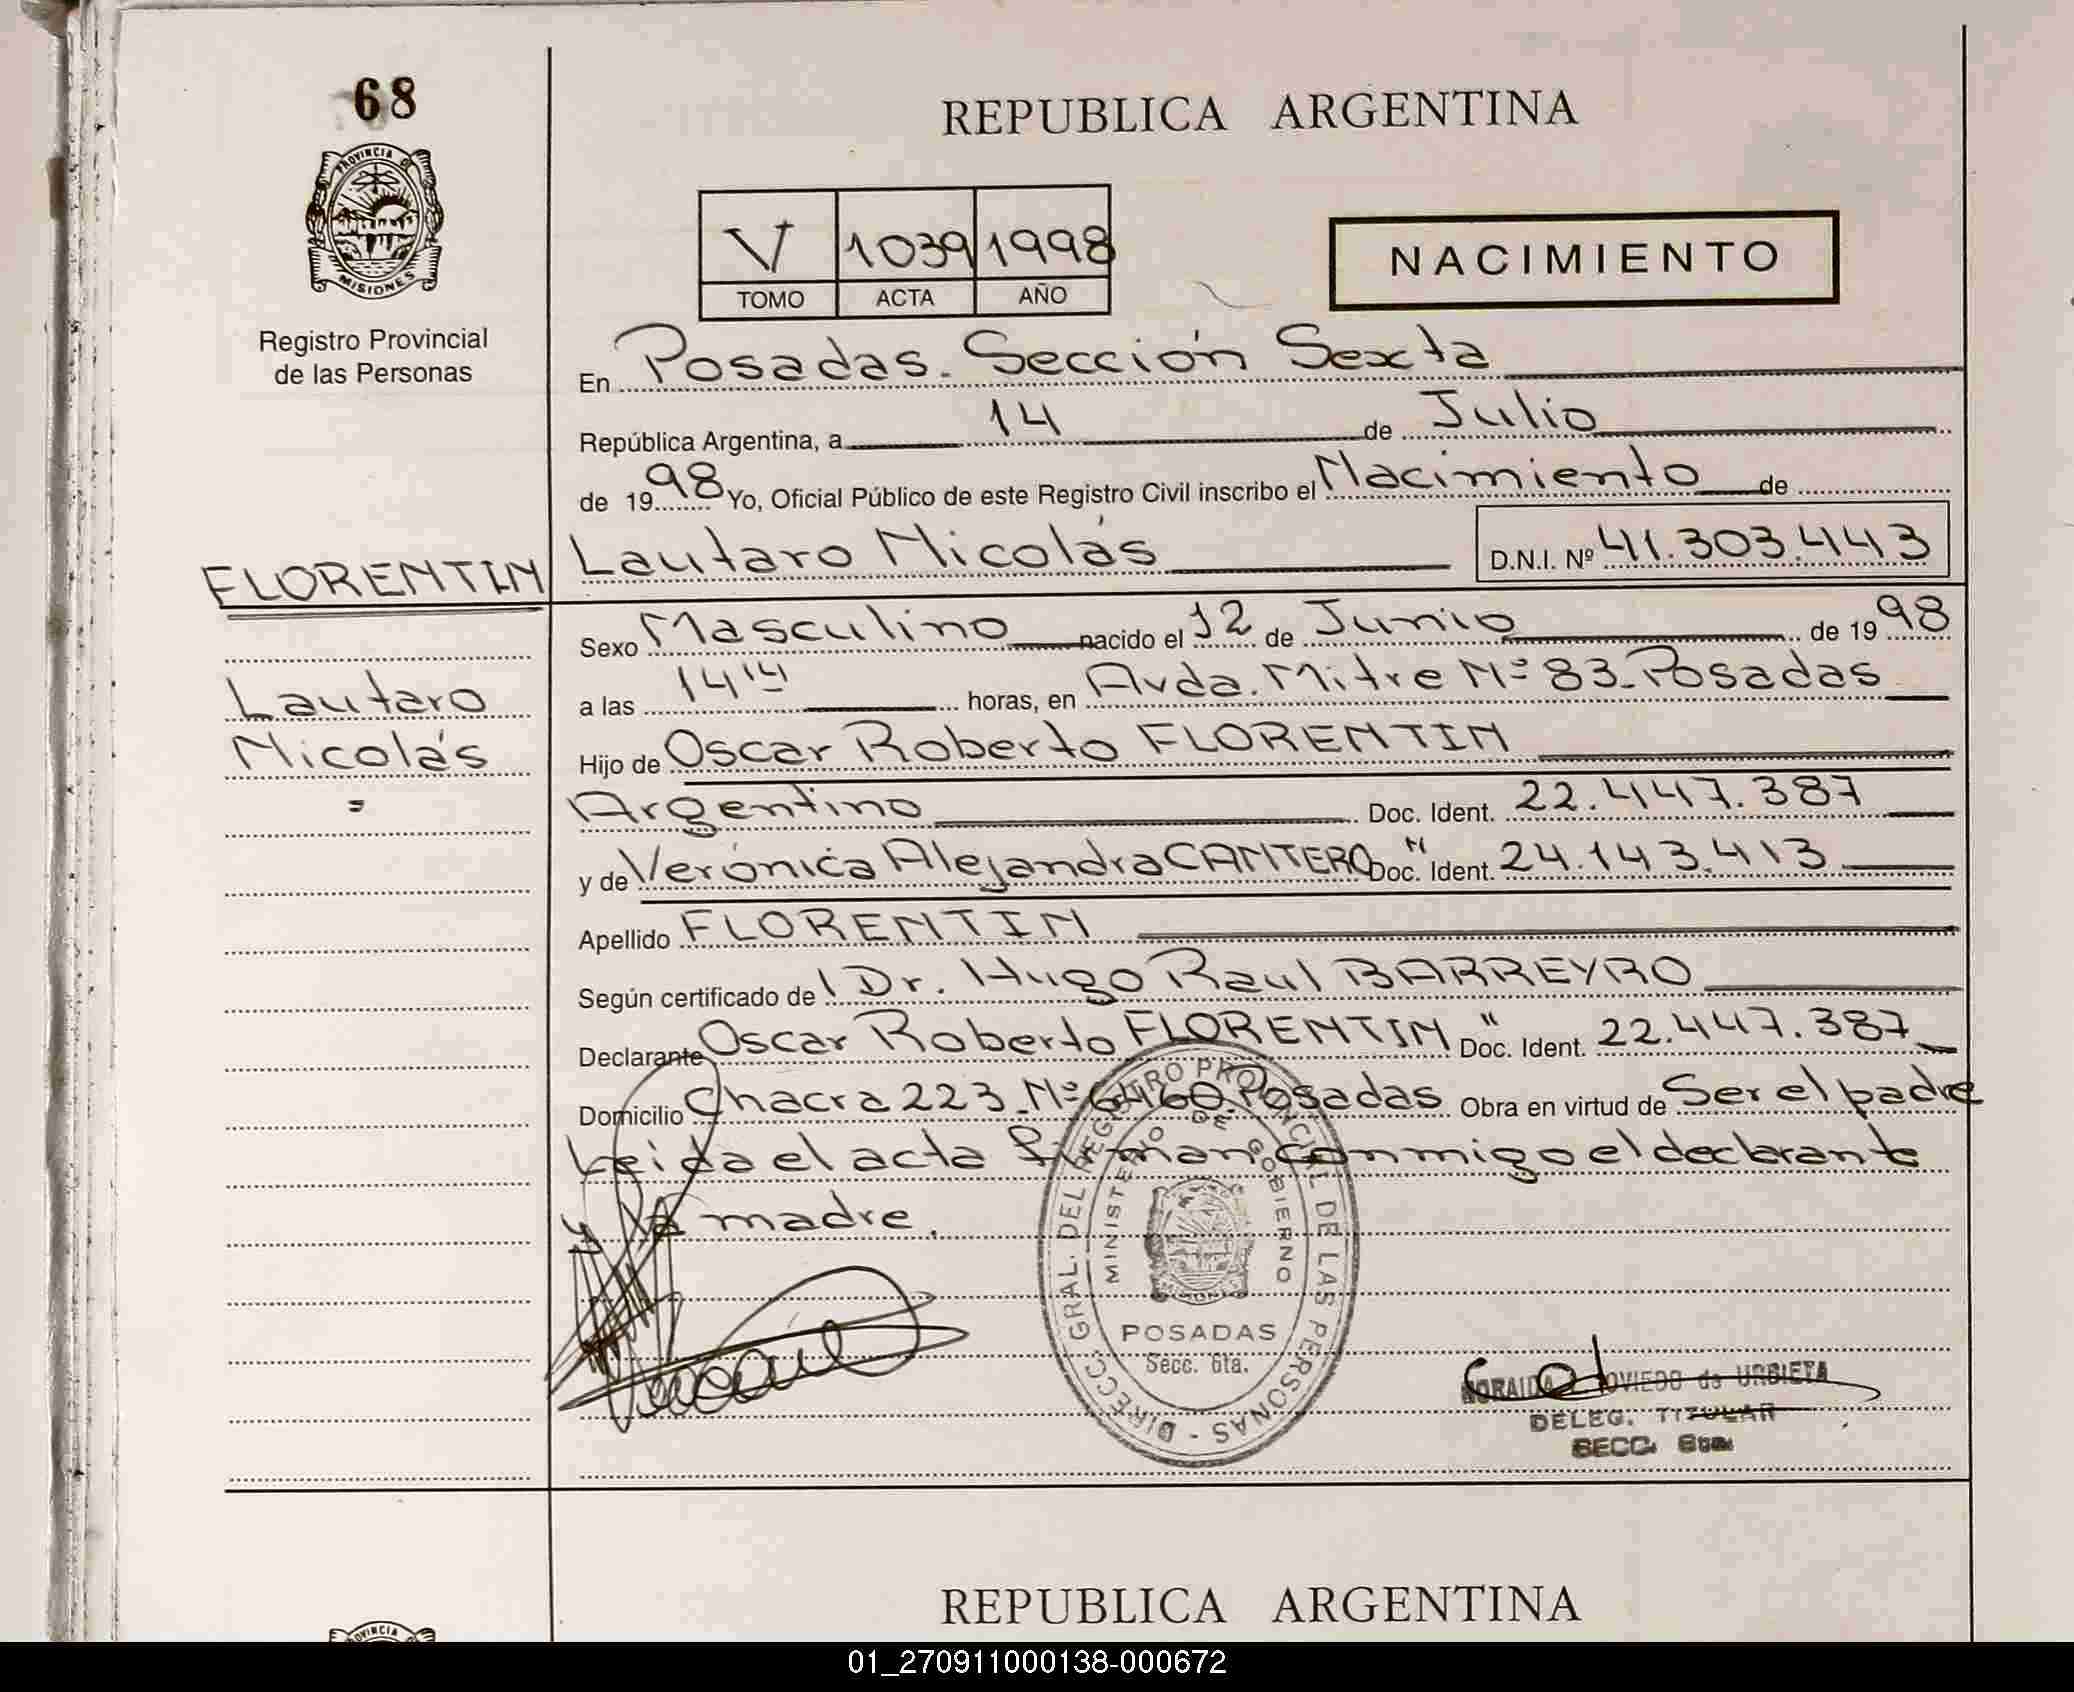 68
PROVINCIA DE
MISIONES
Registro Provincial
de las Personas
REPUBLICA ARGENTINA
V 1039 1998
TOMO ACTA AÑO
NACIMIENTO
En Posadas. Sección Sexta
República Argentina, a 14 de Julio
de 1998 Yo, Oficial Público de este Registro Civil inscribo el Nacimiento de
FLORENTIN Lautaro Nicolás D.N.I. Nº 41.303.443
Sexo Masculino nacido el 12 de Junio de 1998
Lautaro
a las 14¹⁴ horas, en Avda. Mitre Nº 83 Posadas
Nicolás
Hijo de Oscar Roberto FLORENTIN
=
Argentino Doc. Ident. 22.447.387
y de Verónica Alejandra CANTERO " Doc. Ident. 24.143.413
Apellido FLORENTIN
Según certificado del Dr. Hugo Raul BARREYRO
Declarante Oscar Roberto FLORENTIN " Doc. Ident. 22.447.387
Domicilio Chacra 223 Nº 6460 Posadas Obra en virtud de Ser el padre
Leida el acta firman conmigo el declarante
y la madre.
DIRECC. GRAL. DEL REGISTRO PROVINCIAL DE LAS PERSONAS -
MINISTERIO DE GOBIERNO
POSADAS
Secc. 6ta.
OVIEDO de URBIETA
DELEG. TITULAR
SECC. 6ta.
REPUBLICA ARGENTINA
PROVINCIA
01_270911000138-000672